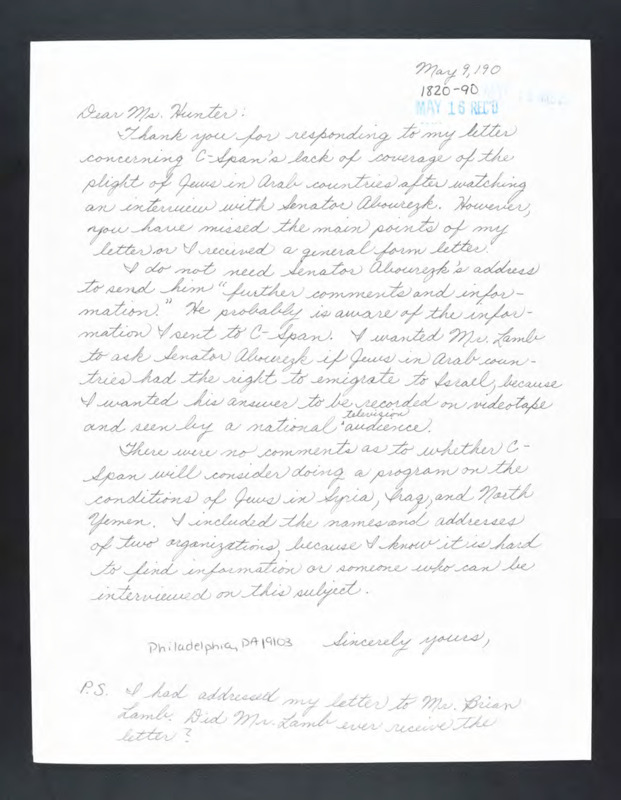 May 9, 190
1820-90
MAY 16 REC'D
Dear Ms. Hunter:
Thank you for responding to my letter
concerning C-Span's lack of coverage of the
plight of Jews in Arab countries after watching
an interview with Senator Abourezk. However,
you have missed the main points of my
letter or I received a general form letter.
I do not need Senator Abourezk's address
to send him "further comments and infor-
mation." He probably is aware of the infor-
mation I sent to C-Span. I wanted Mr. Lamb
to ask Senator Abourezk if Jews in Arab coun-
tries had the right to emigrate to Israel, because
I wanted his answer to be recorded on videotape
and seen by a national television audience.
There were no comments as to whether C-
Span will consider doing a program on the
conditions of Jews in Syria, Iraq, and North
Yemen. I included the names and addresses
of two organizations, because I know it is hard
to find information or someone who can be
interviewed on this subject.
Philadelphia, PA 19103 Sincerely yours,
P.S. I had addressed my letter to Mr. Brian
Lamb. Did Mr. Lamb ever receive the
letter?